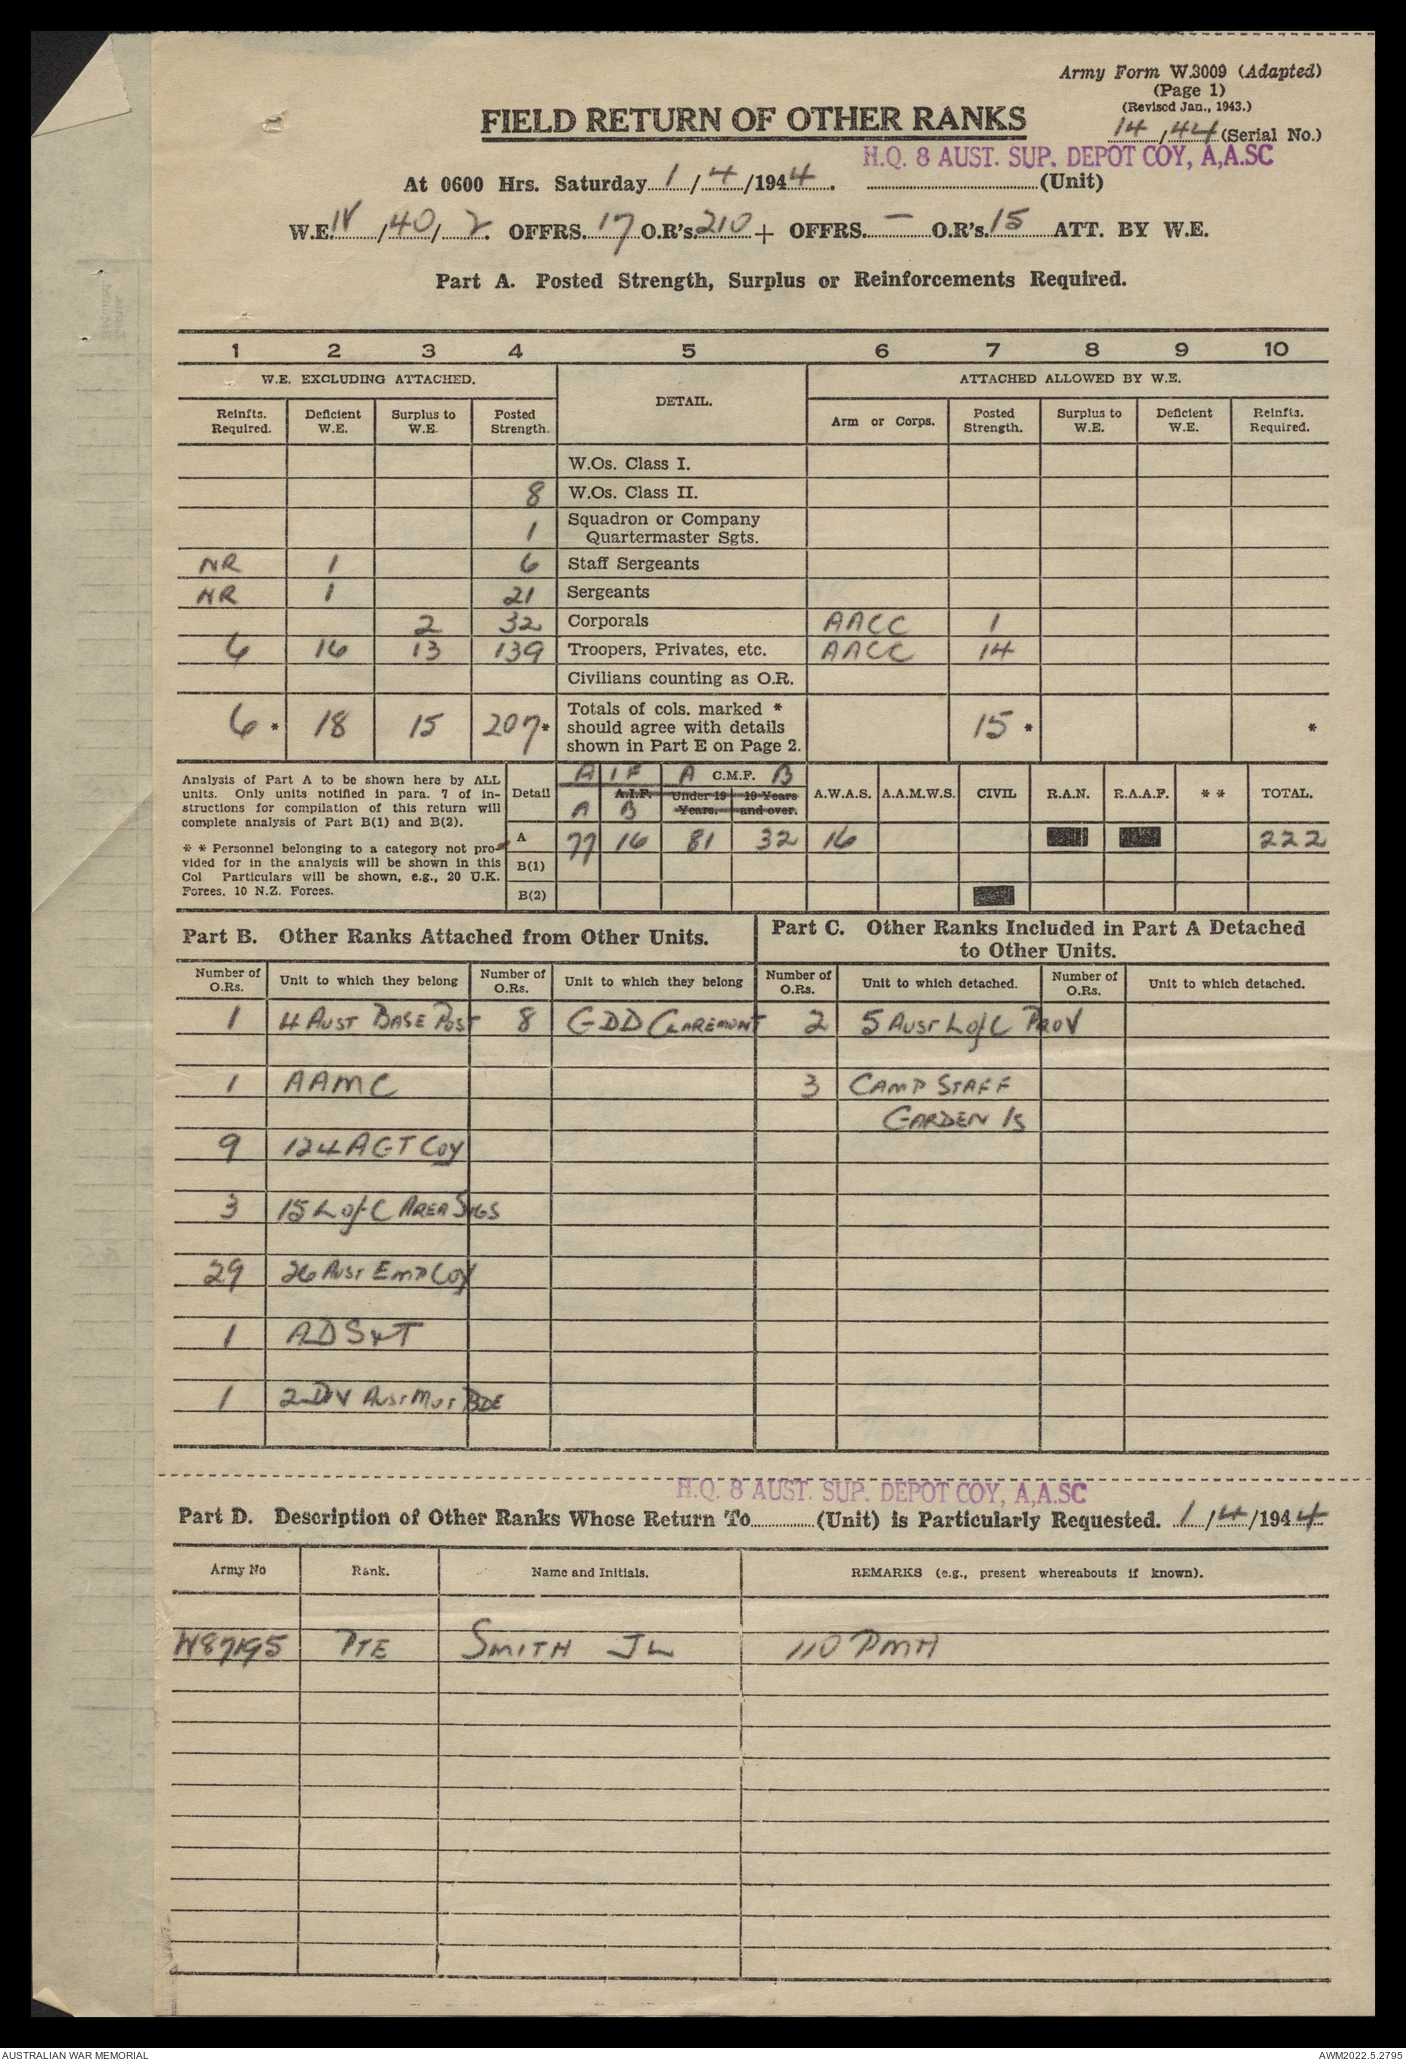 Army Form W.3009 (Adapted)
(Page 1)
(Revised Jan., 1943.)
FIELD RETURN OF OTHER RANKS
14/44 (Serial No.)
H.Q. 8 AUST. SUP. DEPOT COY, A,A.SC
At 0600 Hrs. Saturday 1/4/1944. (Unit)
W.E. IV/40/2. OFFRS. 17 O.R's. 210 + OFFRS. — O.R's. 15 ATT. BY W.E.
Part A. Posted Strength, Surplus or Reinforcements Required.
1 2 3 4 5 6 7 8 9 10
W.E. EXCLUDING ATTACHED. DETAIL. ATTACHED ALLOWED BY W.E.
Reinfts. Required. Deficient W.E. Surplus to W.E. Posted Strength. Arm or Corps. Posted Strength. Surplus to W.E. Deficient W.E. Reinfts. Required.
W.Os. Class I.
8 W.Os. Class II.
1 Squadron or Company Quartermaster Sgts.
NR 1 6 Staff Sergeants
NR 1 21 Sergeants
2 32 Corporals AACC 1
6 16 13 139 Troopers, Privates, etc. AACC 14
Civilians counting as O.R.
6 * 18 15 207 * Totals of cols. marked * should agree with details shown in Part E on Page 2. 15 * *
Analysis of Part A to be shown here by ALL
units. Only units notified in para. 7 of in-
structions for compilation of this return will
complete analysis of Part B(1) and B(2).
* * Personnel belonging to a category not pro-
vided for in the analysis will be shown in this
Col Particulars will be shown, e.g., 20 U.K.
Forces, 10 N.Z. Forces.
Detail A I F A C.M.F. B A.W.A.S. A.A.M.W.S. CIVIL R.A.N. R.A.A.F. * * TOTAL.
A.I.F. Under 19 Years. 19 Years and over.
A B
A 77 16 81 32 16 222
B(1)
B(2)
Part B. Other Ranks Attached from Other Units.
Part C. Other Ranks Included in Part A Detached
to Other Units.
Number of O.Rs. Unit to which they belong Number of O.Rs. Unit to which they belong Number of O.Rs. Unit to which detached. Number of O.Rs. Unit to which detached.
1 4 AUST BASE POST 8 GDD CLAREMONT 2 5 AUST L of C PROV
1 AAMC 3 CAMP STAFF
GARDEN IS
9 124 AGT COY
3 15 L of C AREA SIGS
29 26 AUST EMP COY
1 ADS&T
1 2 DIV AUST MOT BDE
H.Q. 8 AUST. SUP. DEPOT COY, A,A.SC
Part D. Description of Other Ranks Whose Return To (Unit) is Particularly Requested. 1/4/1944
Army No Rank. Name and Initials. REMARKS (e.g., present whereabouts if known).
W87195 PTE SMITH JL 110 PMH
AUSTRALIAN WAR MEMORIAL
AWM2022.5.2795